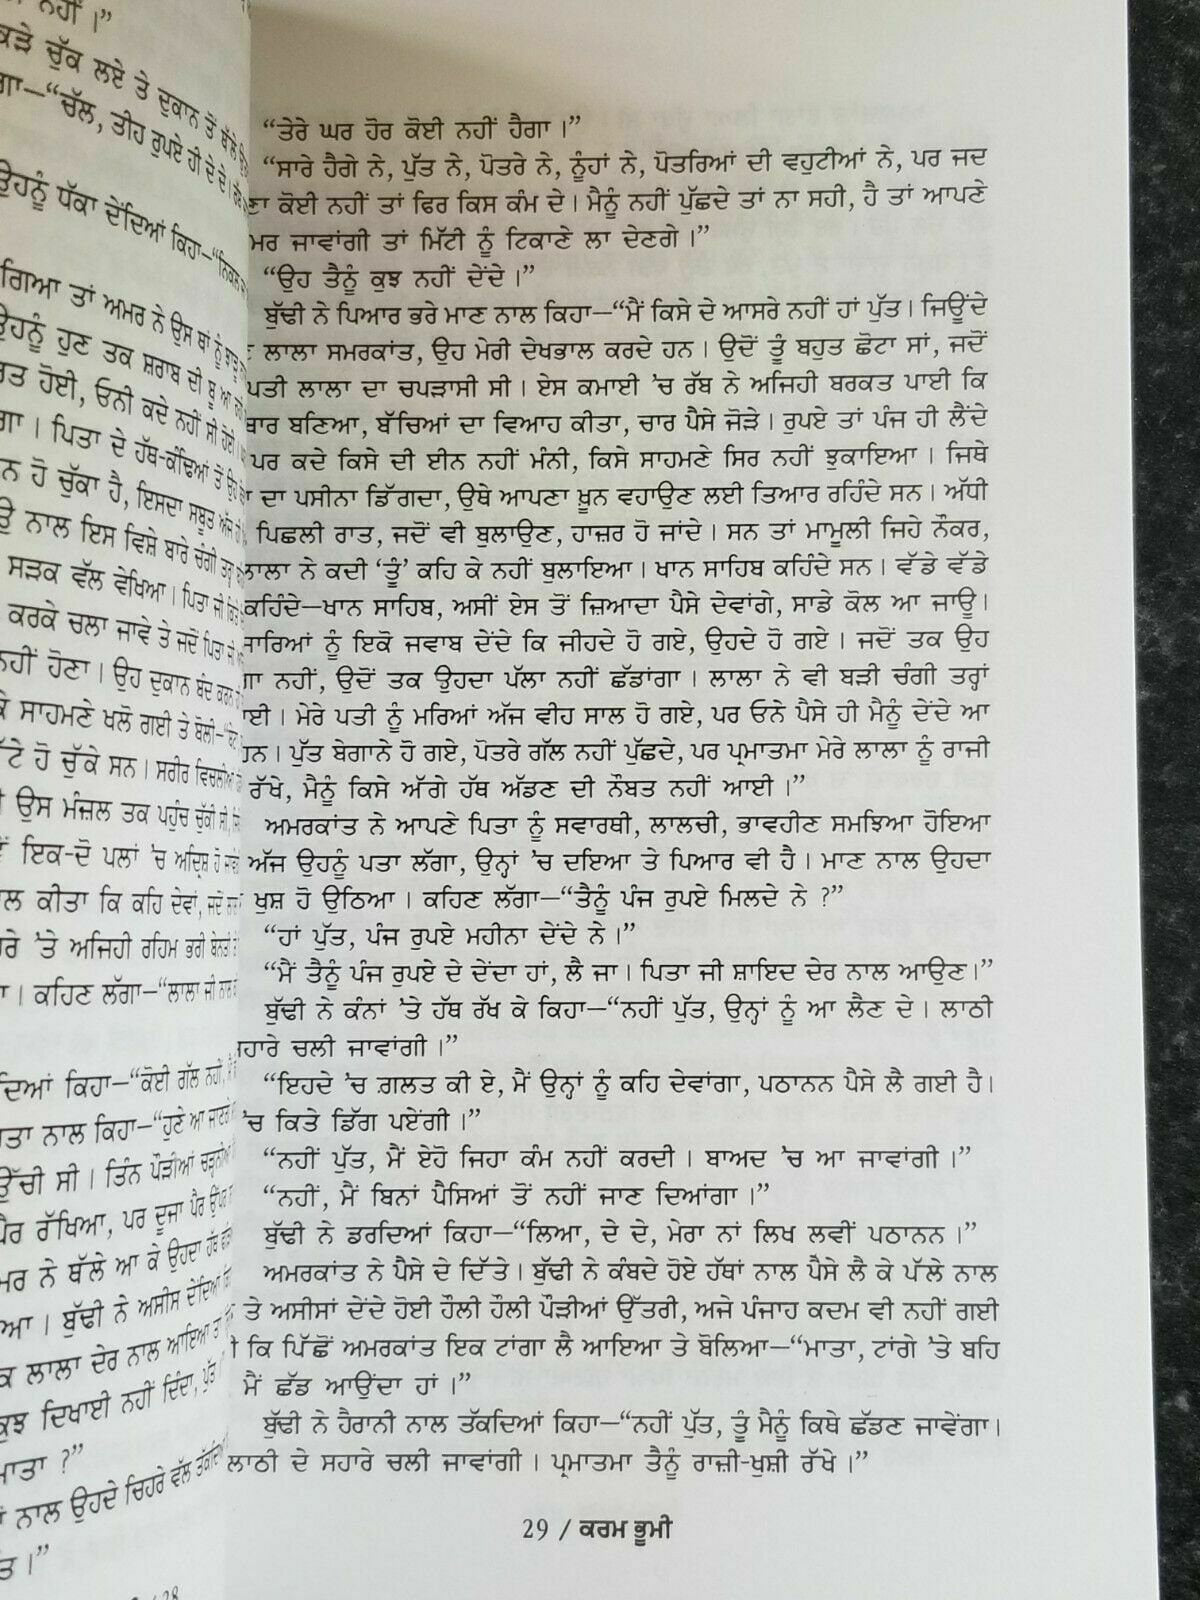 ਨਹੀਂ।”
ਕੜੇ ਚੁੱਕ ਲਏ ਤੇ ਦੁਕਾਨ ਤੋਂ ਥੱਲੇ
“ਚੱਲ, ਤੀਹ ਰੁਪਏ ਹੀ ਦੇ ਦੇ।
ਉਹਨੂੰ ਧੱਕਾ ਦੇਂਦਿਆਂ ਕਿਹਾ—“ਨਿਕਲ
ਗਿਆ ਤਾਂ ਅਮਰ ਨੇ ਉਸ ਥਾਂ ਨੂੰ
ਉਹਨੂੰ ਹੁਣ ਤਕ ਸ਼ਰਾਬ ਦੀ ਬੂ ਆ
ਹੋਈ, ਓਨੀ ਕਦੇ ਨਹੀਂ ਸੀ ਹੋਈ।
ਪਿਤਾ ਦੇ ਹੱਥ-ਕੰਢਿਆਂ ਤੋਂ ਉਹ
ਹੋ ਚੁੱਕਾ ਹੈ, ਇਸਦਾ ਸਬੂਤ ਅੱਜ ਹੀ
ਨਾਲ ਇਸ ਵਿਸ਼ੇ ਬਾਰੇ ਚੰਗੀ ਤਰ੍ਹਾਂ
ਸੜਕ ਵੱਲ ਵੇਖਿਆ। ਪਿਤਾ ਜੀ ਕਿਤੇ
ਕਰਕੇ ਚਲਾ ਜਾਵੇ ਤੇ ਜਦੋਂ ਪਿਤਾ ਜੀ
ਨਹੀਂ ਹੋਣਾ। ਉਹ ਦੁਕਾਨ ਬੰਦ ਕਰਨ
ਸਾਹਮਣੇ ਖਲੋ ਗਈ ਤੇ ਬੋਲੀ—
ਹੋ ਚੁੱਕੇ ਸਨ। ਸਰੀਰ ਵਿਚਲੀਆਂ
ਉਸ ਮੰਜ਼ਲ ਤਕ ਪਹੁੰਚ ਚੁੱਕੀ ਸੀ,
ਇਕ-ਦੋ ਪਲਾਂ 'ਚ ਅਦ੍ਰਿਸ਼ ਹੋ
ਕੀਤਾ ਕਿ ਕਹਿ ਦੇਵਾਂ, ਜਦੋਂ
'ਤੇ ਅਜਿਹੀ ਰਹਿਮ ਭਰੀ ਬੇਨਤੀ
ਕਹਿਣ ਲੱਗਾ—“ਲਾਲਾ ਜੀ ਨਾਲ
ਕਿਹਾ—“ਕੋਈ ਗੱਲ ਨਹੀਂ, ਮੈਂ
ਨਾਲ ਕਿਹਾ—“ਹੁਣੇ ਆ ਜਾਣਗੇ
ਉੱਚੀ ਸੀ। ਤਿੰਨ ਪੌੜੀਆਂ ਚੜ੍ਹਨੀਆਂ
ਪੈਰ ਰੱਖਿਆ, ਪਰ ਦੂਜਾ ਪੈਰ ਉੱਪਰ
ਨੇ ਥੱਲੇ ਆ ਕੇ ਉਹਦਾ ਹੱਥ
ਬੁੱਢੀ ਨੇ ਅਸੀਸ ਦੇਂਦਿਆਂ
ਲਾਲਾ ਦੇਰ ਨਾਲ ਆਇਆ ਤਾਂ
ਕੁਝ ਦਿਖਾਈ ਨਹੀਂ ਦਿੰਦਾ, ਪੁੱਤ
ਮਾਤਾ ?”
ਨਾਲ ਉਹਦੇ ਚਿਹਰੇ ਵੱਲ ਤੱਕਦਿਆਂ
28
“ਤੇਰੇ ਘਰ ਹੋਰ ਕੋਈ ਨਹੀਂ ਹੈਗਾ।”
“ਸਾਰੇ ਹੈਗੇ ਨੇ, ਪੁੱਤ ਨੇ, ਪੋਤਰੇ ਨੇ, ਨੂੰਹਾਂ ਨੇ, ਪੋਤਰਿਆਂ ਦੀ ਵਹੁਟੀਆਂ ਨੇ, ਪਰ ਜਦ
ਕੋਈ ਨਹੀਂ ਤਾਂ ਫਿਰ ਕਿਸ ਕੰਮ ਦੇ। ਮੈਨੂੰ ਨਹੀਂ ਪੁੱਛਦੇ ਤਾਂ ਨਾ ਸਹੀ, ਹੈ ਤਾਂ ਆਪਣੇ
ਮਰ ਜਾਵਾਂਗੀ ਤਾਂ ਮਿੱਟੀ ਨੂੰ ਟਿਕਾਣੇ ਲਾ ਦੇਣਗੇ।”
“ਉਹ ਤੈਨੂੰ ਕੁਝ ਨਹੀਂ ਦੇਂਦੇ।”
ਬੁੱਢੀ ਨੇ ਪਿਆਰ ਭਰੇ ਮਾਣ ਨਾਲ ਕਿਹਾ—“ਮੈਂ ਕਿਸੇ ਦੇ ਆਸਰੇ ਨਹੀਂ ਹਾਂ ਪੁੱਤ। ਜਿਊਂਦੇ
ਲਾਲਾ ਸਮਰਕਾਂਤ, ਉਹ ਮੇਰੀ ਦੇਖਭਾਲ ਕਰਦੇ ਹਨ। ਉਦੋਂ ਤੂੰ ਬਹੁਤ ਛੋਟਾ ਸਾਂ, ਜਦੋਂ
ਪਤੀ ਲਾਲਾ ਦਾ ਚਪੜਾਸੀ ਸੀ। ਏਸ ਕਮਾਈ 'ਚ ਰੱਬ ਨੇ ਅਜਿਹੀ ਬਰਕਤ ਪਾਈ ਕਿ
ਬਾਰ ਬਣਿਆ, ਬੱਚਿਆਂ ਦਾ ਵਿਆਹ ਕੀਤਾ, ਚਾਰ ਪੈਸੇ ਜੋੜੇ। ਰੁਪਏ ਤਾਂ ਪੰਜ ਹੀ ਲੈਂਦੇ
ਪਰ ਕਦੇ ਕਿਸੇ ਦੀ ਈਨ ਨਹੀਂ ਮੰਨੀ, ਕਿਸੇ ਸਾਹਮਣੇ ਸਿਰ ਨਹੀਂ ਝੁਕਾਇਆ। ਜਿਥੇ
ਦਾ ਪਸੀਨਾ ਡਿੱਗਦਾ, ਉਥੇ ਆਪਣਾ ਖ਼ੂਨ ਵਹਾਉਣ ਲਈ ਤਿਆਰ ਰਹਿੰਦੇ ਸਨ। ਅੱਧੀ
ਪਿਛਲੀ ਰਾਤ, ਜਦੋਂ ਵੀ ਬੁਲਾਉਣ, ਹਾਜ਼ਰ ਹੋ ਜਾਂਦੇ। ਸਨ ਤਾਂ ਮਾਮੂਲੀ ਜਿਹੇ ਨੌਕਰ,
ਲਾਲਾ ਨੇ ਕਦੀ ‘ਤੂੰ’ ਕਹਿ ਕੇ ਨਹੀਂ ਬੁਲਾਇਆ। ਖਾਨ ਸਾਹਿਬ ਕਹਿੰਦੇ ਸਨ। ਵੱਡੇ ਵੱਡੇ
ਕਹਿੰਦੇ—ਖਾਨ ਸਾਹਿਬ, ਅਸੀਂ ਏਸ ਤੋਂ ਜ਼ਿਆਦਾ ਪੈਸੇ ਦੇਵਾਂਗੇ, ਸਾਡੇ ਕੋਲ ਆ ਜਾਊ।
ਸਾਰਿਆਂ ਨੂੰ ਇਕੋ ਜਵਾਬ ਦੇਂਦੇ ਕਿ ਜੀਹਦੇ ਹੋ ਗਏ, ਉਹਦੇ ਹੋ ਗਏ। ਜਦੋਂ ਤਕ ਉਹ
ਨਹੀਂ, ਉਦੋਂ ਤਕ ਉਹਦਾ ਪੱਲਾ ਨਹੀਂ ਛੱਡਾਂਗਾ। ਲਾਲਾ ਨੇ ਵੀ ਬੜੀ ਚੰਗੀ ਤਰ੍ਹਾਂ
ਮੇਰੇ ਪਤੀ ਨੂੰ ਮਰਿਆਂ ਅੱਜ ਵੀਹ ਸਾਲ ਹੋ ਗਏ, ਪਰ ਓਨੇ ਪੈਸੇ ਹੀ ਮੈਨੂੰ ਦੇਂਦੇ ਆ
ਹਨ। ਪੁੱਤ ਬੇਗਾਨੇ ਹੋ ਗਏ, ਪੋਤਰੇ ਗੱਲ ਨਹੀਂ ਪੁੱਛਦੇ, ਪਰ ਪ੍ਰਮਾਤਮਾ ਮੇਰੇ ਲਾਲਾ ਨੂੰ ਰਾਜੀ
ਰੱਖੇ, ਮੈਨੂੰ ਕਿਸੇ ਅੱਗੇ ਹੱਥ ਅੱਡਣ ਦੀ ਨੌਬਤ ਨਹੀਂ ਆਈ।”
ਅਮਰਕਾਂਤ ਨੇ ਆਪਣੇ ਪਿਤਾ ਨੂੰ ਸਵਾਰਥੀ, ਲਾਲਚੀ, ਭਾਵਹੀਣ ਸਮਝਿਆ ਹੋਇਆ
ਅੱਜ ਉਹਨੂੰ ਪਤਾ ਲੱਗਾ, ਉਨ੍ਹਾਂ 'ਚ ਦਇਆ ਤੇ ਪਿਆਰ ਵੀ ਹੈ। ਮਾਣ ਨਾਲ ਉਹਦਾ
ਖੁਸ਼ ਹੋ ਉਠਿਆ। ਕਹਿਣ ਲੱਗਾ—“ਤੈਨੂੰ ਪੰਜ ਰੁਪਏ ਮਿਲਦੇ ਨੇ ?”
“ਹਾਂ ਪੁੱਤ, ਪੰਜ ਰੁਪਏ ਮਹੀਨਾ ਦੇਂਦੇ ਨੇ।”
“ਮੈਂ ਤੈਨੂੰ ਪੰਜ ਰੁਪਏ ਦੇ ਦੇਂਦਾ ਹਾਂ, ਲੈ ਜਾ। ਪਿਤਾ ਜੀ ਸ਼ਾਇਦ ਦੇਰ ਨਾਲ ਆਉਣ।”
ਬੁੱਢੀ ਨੇ ਕੰਨਾਂ 'ਤੇ ਹੱਥ ਰੱਖ ਕੇ ਕਿਹਾ—“ਨਹੀਂ ਪੁੱਤ, ਉਨ੍ਹਾਂ ਨੂੰ ਆ ਲੈਣ ਦੇ। ਲਾਠੀ
ਸਹਾਰੇ ਚਲੀ ਜਾਵਾਂਗੀ।”
“ਇਹਦੇ 'ਚ ਗ਼ਲਤ ਕੀ ਏ, ਮੈਂ ਉਨ੍ਹਾਂ ਨੂੰ ਕਹਿ ਦੇਵਾਂਗਾ, ਪਠਾਨਨ ਪੈਸੇ ਲੈ ਗਈ ਹੈ।
'ਚ ਕਿਤੇ ਡਿੱਗ ਪਏਂਗੀ।”
“ਨਹੀਂ ਪੁੱਤ, ਮੈਂ ਏਹੋ ਜਿਹਾ ਕੰਮ ਨਹੀਂ ਕਰਦੀ। ਬਾਅਦ 'ਚ ਆ ਜਾਵਾਂਗੀ।”
“ਨਹੀਂ, ਮੈਂ ਬਿਨਾਂ ਪੈਸਿਆਂ ਤੋਂ ਨਹੀਂ ਜਾਣ ਦਿਆਂਗਾ।”
ਬੁੱਢੀ ਨੇ ਡਰਦਿਆਂ ਕਿਹਾ—“ਲਿਆ, ਦੇ ਦੇ, ਮੇਰਾ ਨਾਂ ਲਿਖ ਲਵੀਂ ਪਠਾਨਨ।”
ਅਮਰਕਾਂਤ ਨੇ ਪੈਸੇ ਦੇ ਦਿੱਤੇ। ਬੁੱਢੀ ਨੇ ਕੰਬਦੇ ਹੋਏ ਹੱਥਾਂ ਨਾਲ ਪੈਸੇ ਲੈ ਕੇ ਪੱਲੇ ਨਾਲ
ਤੇ ਅਸੀਸਾਂ ਦੇਂਦੇ ਹੋਈ ਹੌਲੀ ਹੌਲੀ ਪੌੜੀਆਂ ਉੱਤਰੀ, ਅਜੇ ਪੰਜਾਹ ਕਦਮ ਵੀ ਨਹੀਂ ਗਈ
ਕਿ ਪਿੱਛੋਂ ਅਮਰਕਾਂਤ ਇਕ ਟਾਂਗਾ ਲੈ ਆਇਆ ਤੇ ਬੋਲਿਆ—“ਮਾਤਾ, ਟਾਂਗੇ 'ਤੇ ਬਹਿ
ਮੈਂ ਛੱਡ ਆਉਂਦਾ ਹਾਂ।”
ਬੁੱਢੀ ਨੇ ਹੈਰਾਨੀ ਨਾਲ ਤੱਕਦਿਆਂ ਕਿਹਾ—“ਨਹੀਂ ਪੁੱਤ, ਤੂੰ ਮੈਨੂੰ ਕਿਥੇ ਛੱਡਣ ਜਾਵੇਂਗਾ।
ਲਾਠੀ ਦੇ ਸਹਾਰੇ ਚਲੀ ਜਾਵਾਂਗੀ। ਪ੍ਰਮਾਤਮਾ ਤੈਨੂੰ ਰਾਜ਼ੀ-ਖੁਸ਼ੀ ਰੱਖੇ।”
29 / ਕਰਮ ਭੂਮੀ